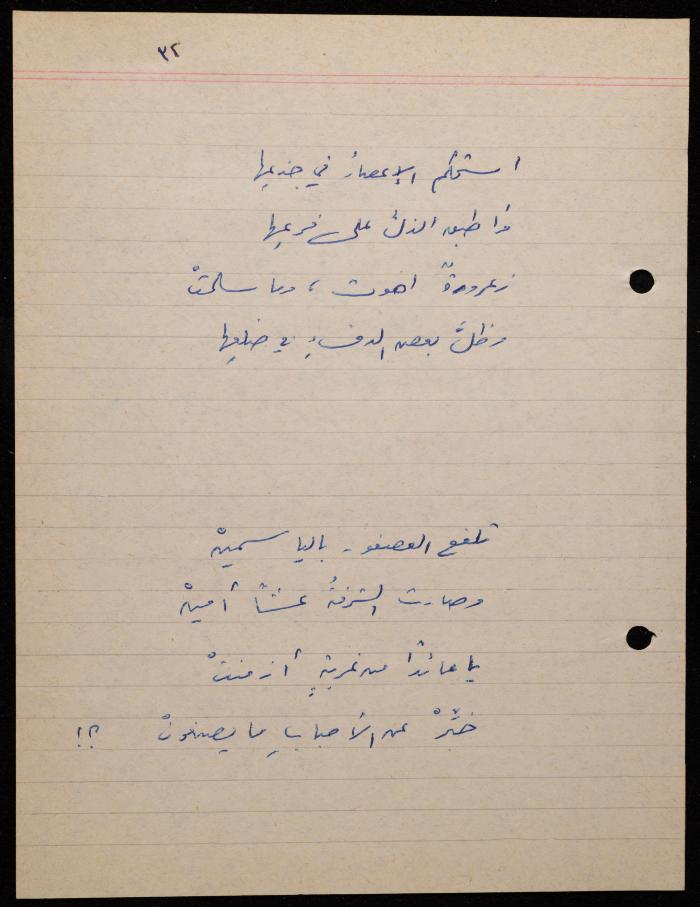 ٣٢
استحكم الإعصارُ في جذعِها
وأطبق الذلُّ على فرعِها
زعرورةٌ اهوت ، وما سلّمتْ
وظلَّ بعض الدفءِ في ضلعِها
تلفع العصفور بالياسمينْ
وصارت الشرفةُ عشّاً أمينْ
يا عائداً من غربةٍ أزمنتْ
خبِّرْ عن الأحبابِ ما يصنعونْ ؟!